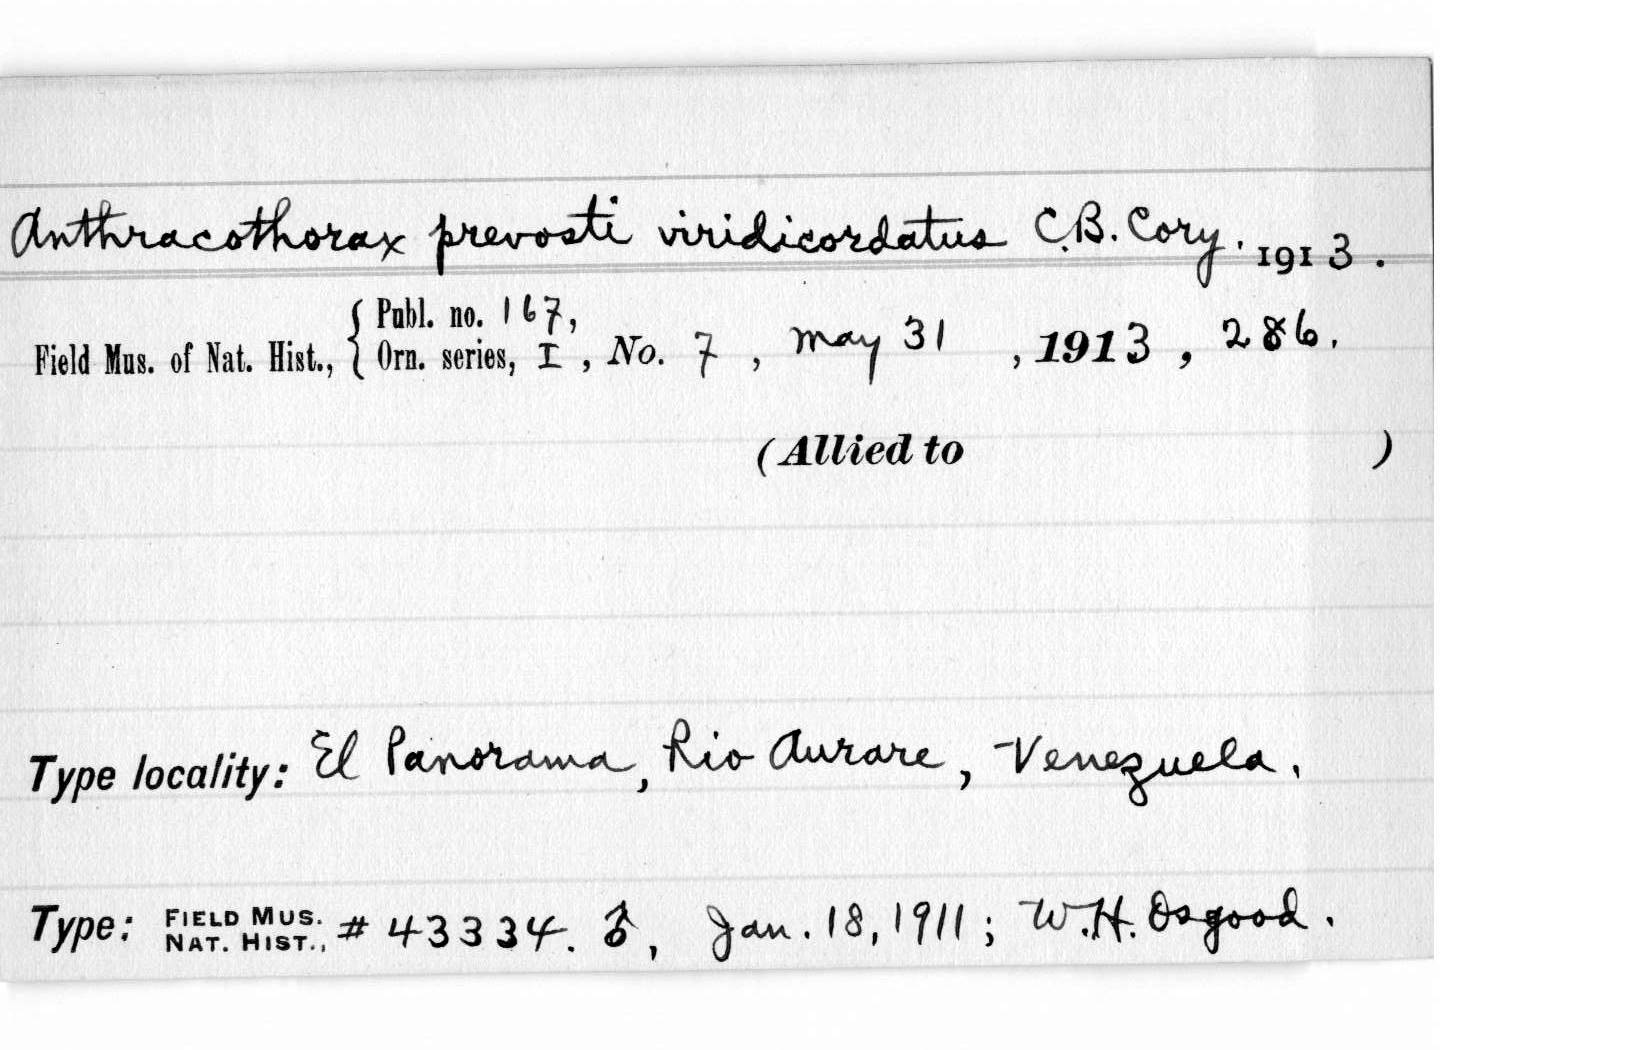 Anthracothorax prevosti viridicordatus C.B. Cory. 1913.
Field Mus. of Nat. Hist., { Publ. no. 167,
Orn. series, I, No. 7, May 31, 1913, 286.
(Allied to )
Type locality: El Panorama, Rio Aurare, Venezuela.
Type: FIELD MUS. NAT. HIST., # 43334. ♂, Jan. 18, 1911; W.H. Osgood.